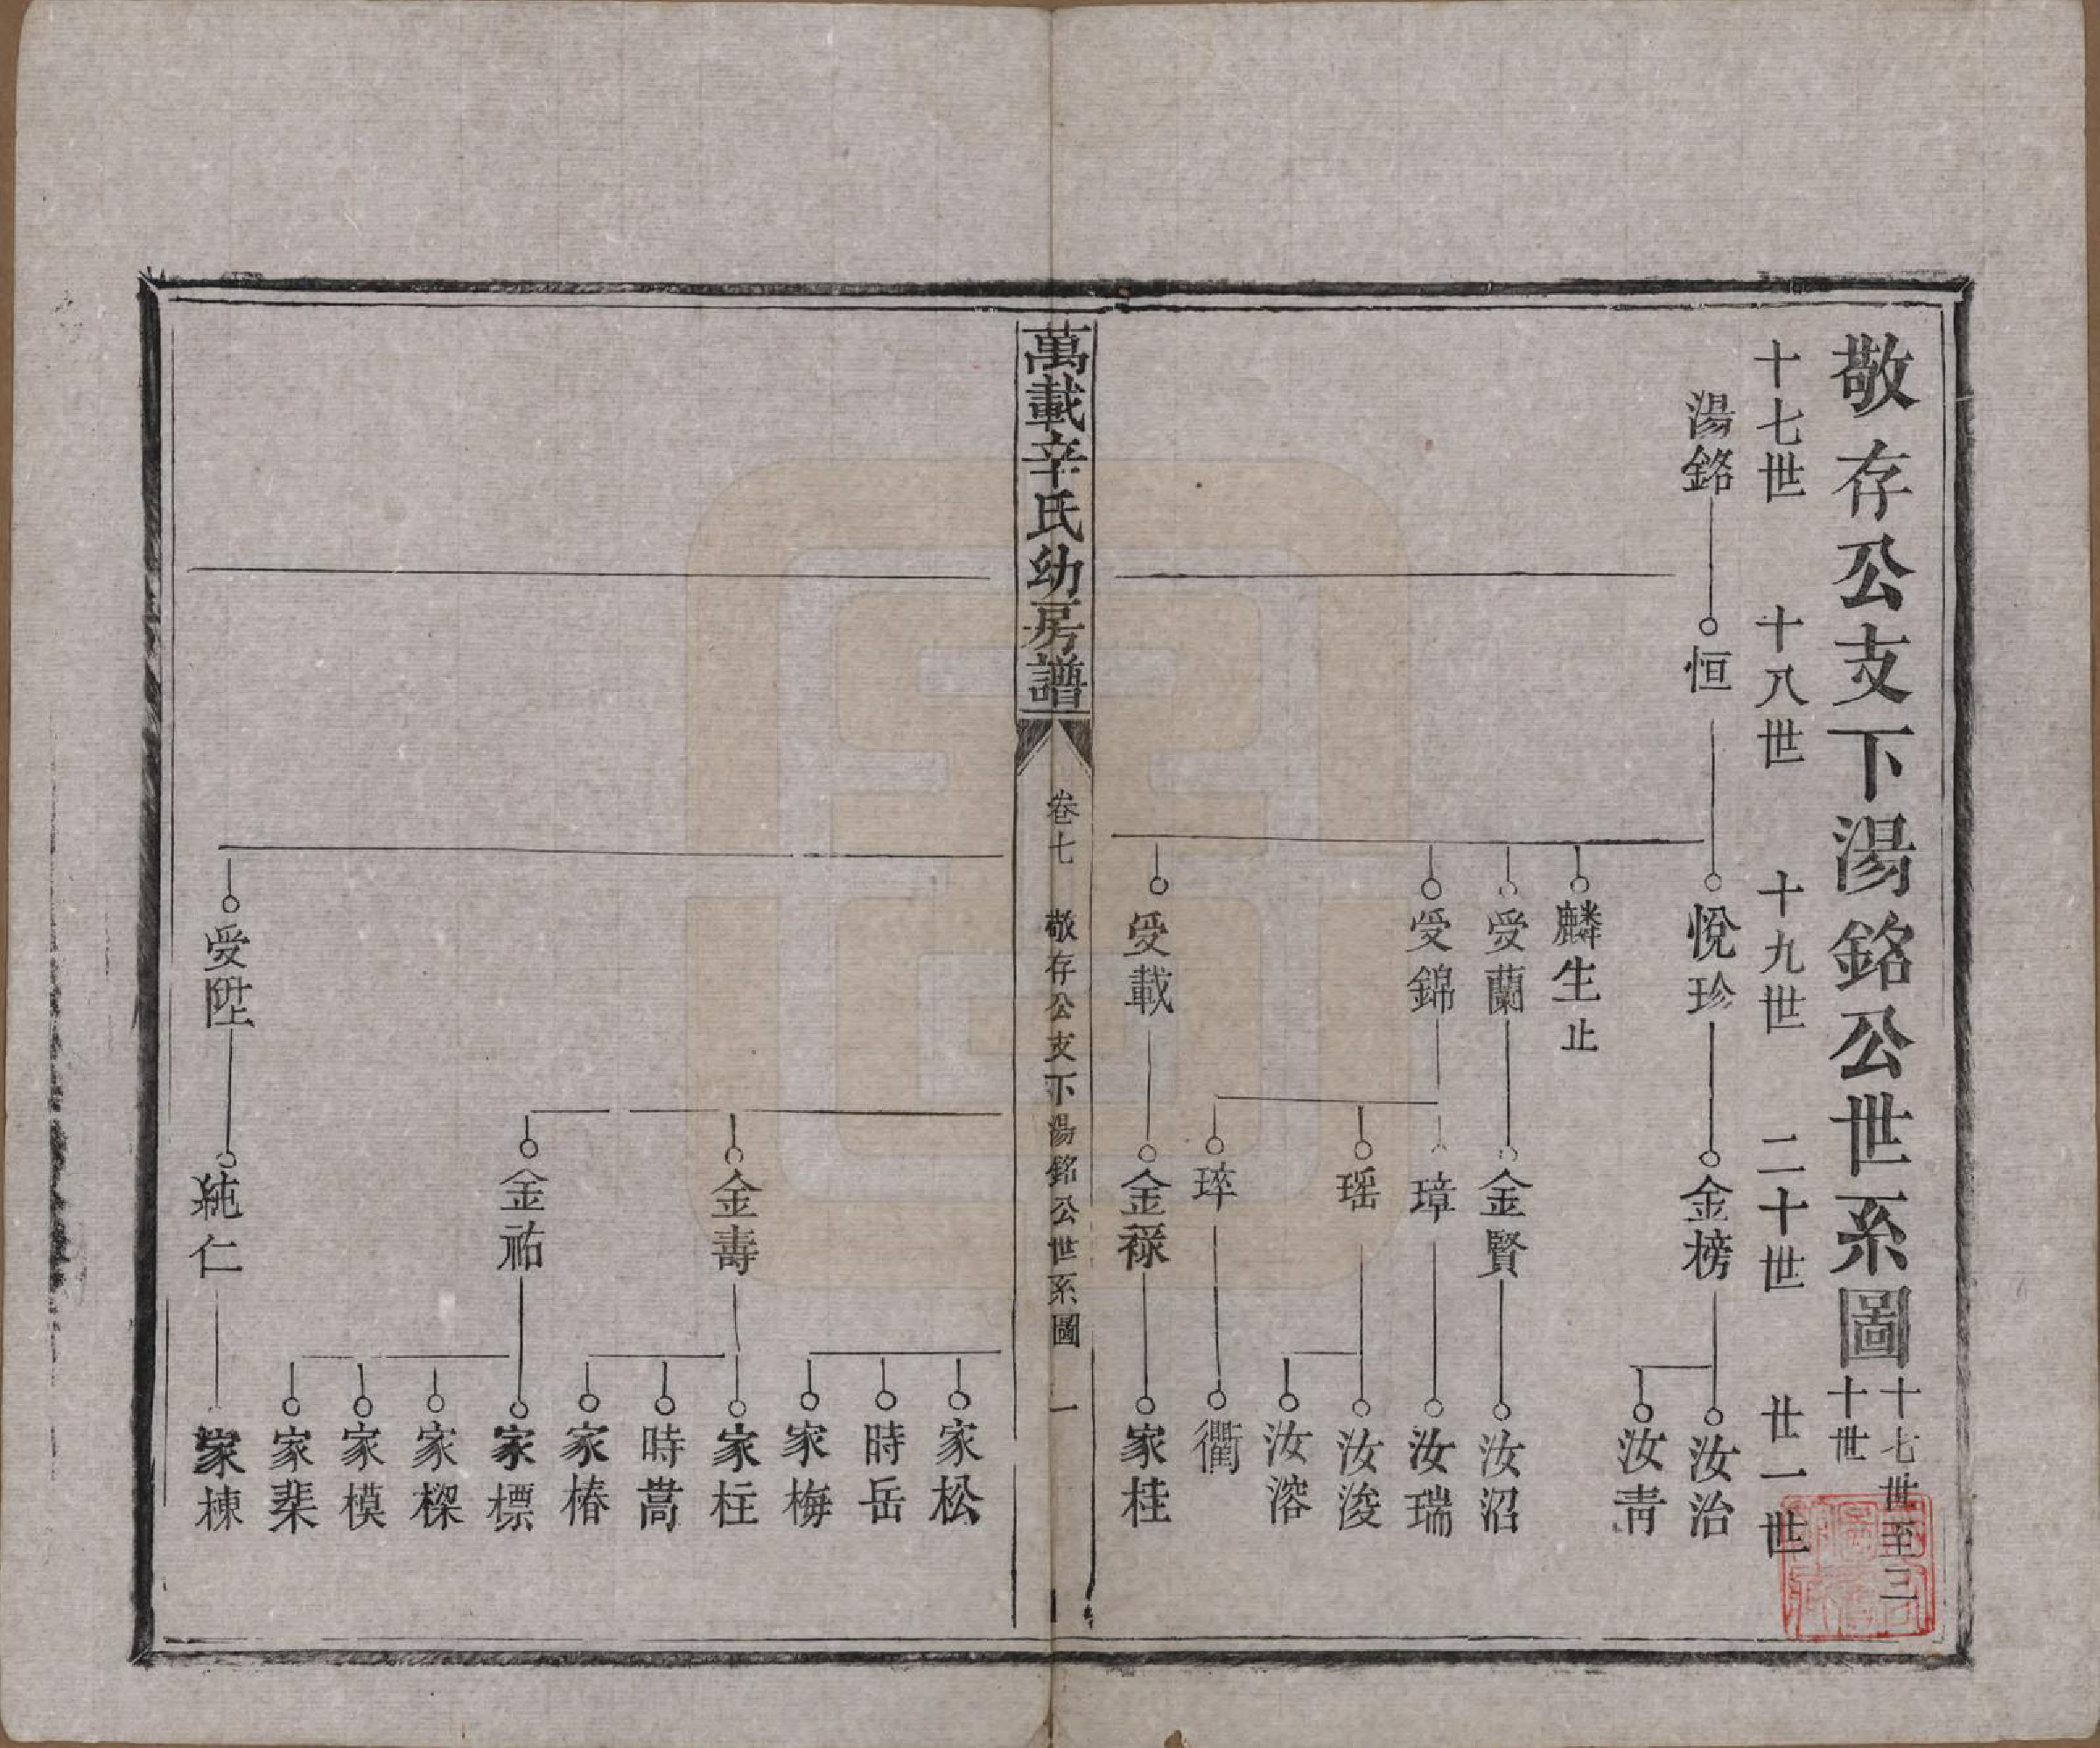 敬存公支下湯銘公世系圖
十七世至三
十世
十七世
十八世
十九世
二十世
廿一世
湯銘
恒
悅珍
金榜
汝治
汝靑
麟生止
受蘭
金賢
汝沼
受錦
璋
汝瑞
瑶
汝浚
汝溶
琗
衢
受載
金祿
家桂
萬載辛氏幼房譜
卷七
敬存公支下湯銘公世系圖
一
家松
時岳
家梅
金壽
家柱
時嵩
家椿
金祐
家標
家樑
家模
家棐
受陞
純仁
家棟